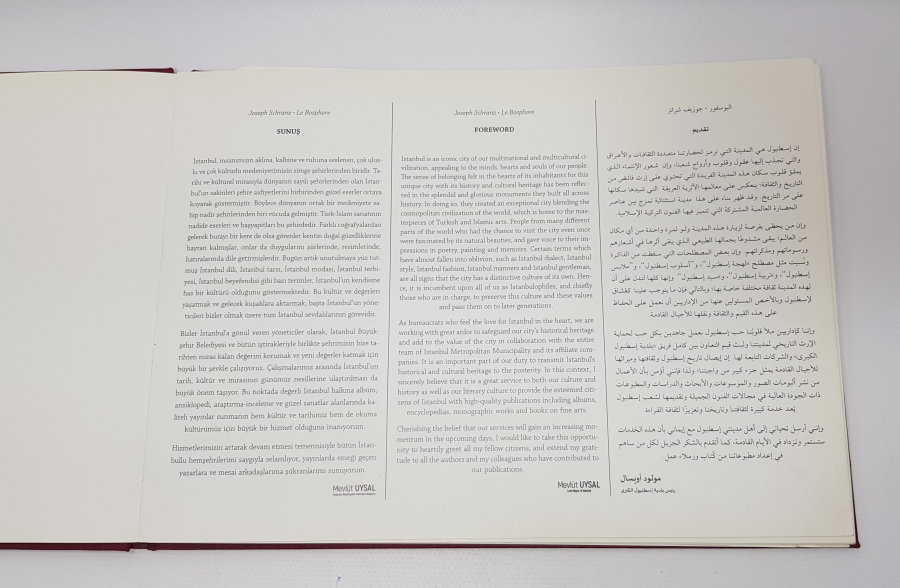 Joseph Schranz • Le Bosphore
SUNUŞ
İstanbul, insanımızın aklına, kalbine ve ruhuna seslenen, çok ulus-
lu ve çok kültürlü medeniyetimizin simge şehirlerinden biridir. Ta-
rihi ve kültürel mirasıyla dünyanın sayılı şehirlerinden olan İstan-
bul'un sakinleri şehre aidiyetlerini birbirinden güzel eserler ortaya
koyarak göstermiştir. Böylece dünyanın ortak bir medeniyete sa-
hip nadir şehirlerinden biri vücuda gelmiştir. Türk-İslam sanatının
nadide eserleri ve başyapıtları bu şehirdedir. Farklı coğrafyalardan
gelerek burayı bir kere de olsa görenler kentin doğal güzelliklerine
hayran kalmışlar, onlar da duygularını şiirlerinde, resimlerinde,
hatıralarında dile getirmişlerdir. Bugün artık unutulmaya yüz tut-
muş İstanbul dili, İstanbul tarzı, İstanbul modası, İstanbul terbi-
yesi, İstanbul beyefendisi gibi bazı terimler, İstanbul'un kendisine
has bir kültürü olduğunu göstermektedir. Bu kültür ve değerleri
yaşatmak ve gelecek kuşaklara aktarmak, başta İstanbul'un yöne-
ticileri bizler olmak üzere tüm İstanbul sevdalılarının görevidir.
Bizler İstanbul'a gönül veren yöneticiler olarak, İstanbul Büyük-
şehir Belediyesi ve bütün iştirakleriyle birlikte şehrimizin bize ta-
rihten miras kalan değerini korumak ve yeni değerler katmak için
büyük bir şevkle çalışıyoruz. Çalışmalarımız arasında İstanbul'un
tarih, kültür ve mirasının günümüz nesillerine ulaştırılması da
büyük önem taşıyor. Bu noktada değerli İstanbul halkına album,
ansiklopedi, araştırma-inceleme ve güzel sanatlar alanlarında ka-
liteli yayınlar sunmanın hem kültür ve tarihimiz hem de okuma
kültürümüz için büyük bir hizmet olduğuna inanıyorum.
Hizmetlerimizin artarak devam etmesi temennisiyle bütün İstan-
bullu hemşehrilerimi saygıyla selamlıyor, yayınlarda emeği geçen
yazarlara ve mesai arkadaşlarıma şükranlarımı sunuyorum.
Mevlüt UYSAL
Joseph Schranz • Le Bosphore
FOREWORD
Istanbul is an iconic city of our multinational and multicultural ci-
vilization, appealing to the minds, hearts and souls of our people.
The sense of belonging felt in the hearts of its inhabitants for this
unique city with its history and cultural heritage has been reflec-
ted in the splendid and glorious monuments they built all across
history. In doing so, they created an exceptional city blending the
cosmopolitan civilisation of the world, which is home to the mas-
terpieces of Turkish and Islamic arts. People from many different
parts of the world who had the chance to visit the city even once
were fascinated by its natural beauties, and gave voice to their im-
pressions in poetry, painting and memoirs. Certain terms which
have almost fallen into oblivion, such as Istanbul dialect, Istanbul
style, Istanbul fashion, Istanbul manners and Istanbul gentleman,
are all signs that the city has a distinctive culture of its own. Hen-
ce, it is incumbent upon all of us as Istanbulophiles, and chiefly
those who are in charge, to preserve this culture and these values
and pass them on to later generations.
As bureaucrats who feel the love for Istanbul in the heart, we are
working with great ardor to safeguard our city's historical heritage
and add to the value of the city in collaboration with the entire
team of Istanbul Metropolitan Municipality and its affiliate com-
panies. It is an important part of our duty to transmit Istanbul's
historical and cultural heritage to the posterity. In this context, I
sincerely believe that it is a great service to both our culture and
history as well as our literary culture to provide the esteemed citi-
zens of Istanbul with high-quality publications including albums,
encyclopedias, monographic works and books on fine arts.
Cherishing the belief that our services will gain an increasing mo-
mentum in the upcoming days, I would like to take this opportu-
nity to heartily greet all my fellow citizens, and extend my grati-
tude to all the authors and my colleagues who have contributed to
our publications.
Mevlüt UYSAL
البوسفور - جوزيف شرانز
تقديم
إن إسطنبول هي المدينة التي ترمز لحضارتنا متعددة الثقافات والأعراق
والتي تجذب إليها عقول وقلوب وأرواح شعبنا، وإن شعور الإنتماء الذي
يملؤ قلوب سكان هذه المدينة الفريدة التي تحتوي على إرث فائض من
التاريخ والثقافة؛ ينعكس على معالمها الأثرية العريقة التي شيدها سكانها
على مر التاريخ. وقد ظهر بناء على هذا مدينة استثنائية تمزج بين عناصر
الحضارة العالمية المشتركة التي تتميز فيها الفنون التركية الإسلامية.
وإن من يحظى بفرصة لزيارة هذه المدينة ولو لمرة واحدة من أي مكان
من العالم؛ يبقى مشدوها بجمالها الطبيعي الذي يبقى أثرها في أشعارهم
ورسوماتهم ومذكراتهم. وإن بعض المصطلحات التي سقطت من الذاكرة
ونسيت مثل مصطلح "لهجة إسطنبول"، و"أسلوب إسطنبول"، و"ملابس
إسطنبول"، و"تربية إسطنبول"، و"سيد إسطنبول" وإنها كلها تدل على أن
لهذه المدينة ثقافة مختلفة خاصة بها؛ وبالتالي فإن ما يتوجب علينا كعشاق
لإسطنبول وبالأخص المسئولين عنها من الإداريين أن نعمل على الحفاظ
على هذه القيم والثقافة ونقلها للأجيال القادمة.
وإننا كإداريين ملأ قلوبنا حب إسطنبول نعمل جاهدين بكل حب لحماية
الإرث التاريخي لمدينتنا ولبث قيم التعاون بين كامل فريق «بلدية إسطنبول
الكبرى» والشركات التابعة لها. إن إيصال تاريخ إسطنبول وثقافتها وميراثها
للأجيال القادمة يمثل جزء كبير من واجبنا؛ ولذا فإنني أؤمن بأن الأعمال
من نشر ألبومات الصور والموسوعات والأبحاث والدراسات والمطبوعات
ذات الجودة العالية في مجالات الفنون الجميلة وتقديمها لشعب إسطنبول
يُعد خدمة كبيرة لثقافتنا وتاريخنا وتعزيزًا لثقافة القراءة.
وإنني أرسل تحياتي إلى أهل مدينتي إسطنبول مع إيماني بأن هذه الخدمات
ستستمر وتزداد في الأيام القادمة، كما أتقدم بالشكر الجزيل لكل من ساهم
في إعداد مطبوعاتنا من كُتاب وزملاء عمل.
مولود اويسال
رئيس بلدية إسطنبول الكبرى